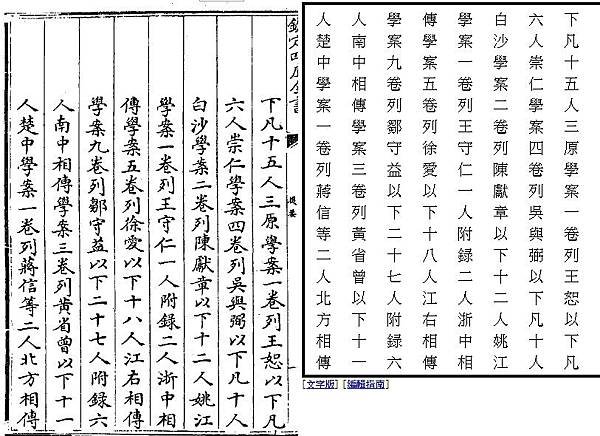 欽定四庫全書
提要
下凡十五人三原學案一卷列王恕以下凡
六人崇仁學案四卷列吳與弼以下凡十人
白沙學案二卷列陳獻章以下十二人姚江
學案一卷列王守仁一人附録二人浙中相
傳學案五卷列徐愛以下十八人江右相傳
學案九卷列鄒守益以下二十七人附録六
人南中相傳學案三卷列黃省曾以下十一
人楚中學案一卷列蔣信等二人北方相傳
下凡十五人三原學案一卷列王恕以下凡
六人崇仁學案四卷列吳與弼以下凡十人
白沙學案二卷列陳獻章以下十二人姚江
學案一卷列王守仁一人附録二人浙中相
傳學案五卷列徐愛以下十八人江右相傳
學案九卷列鄒守益以下二十七人附録六
人南中相傳學案三卷列黃省曾以下十一
人楚中學案一卷列蔣信等二人北方相傳
[文字版] [編輯指南]